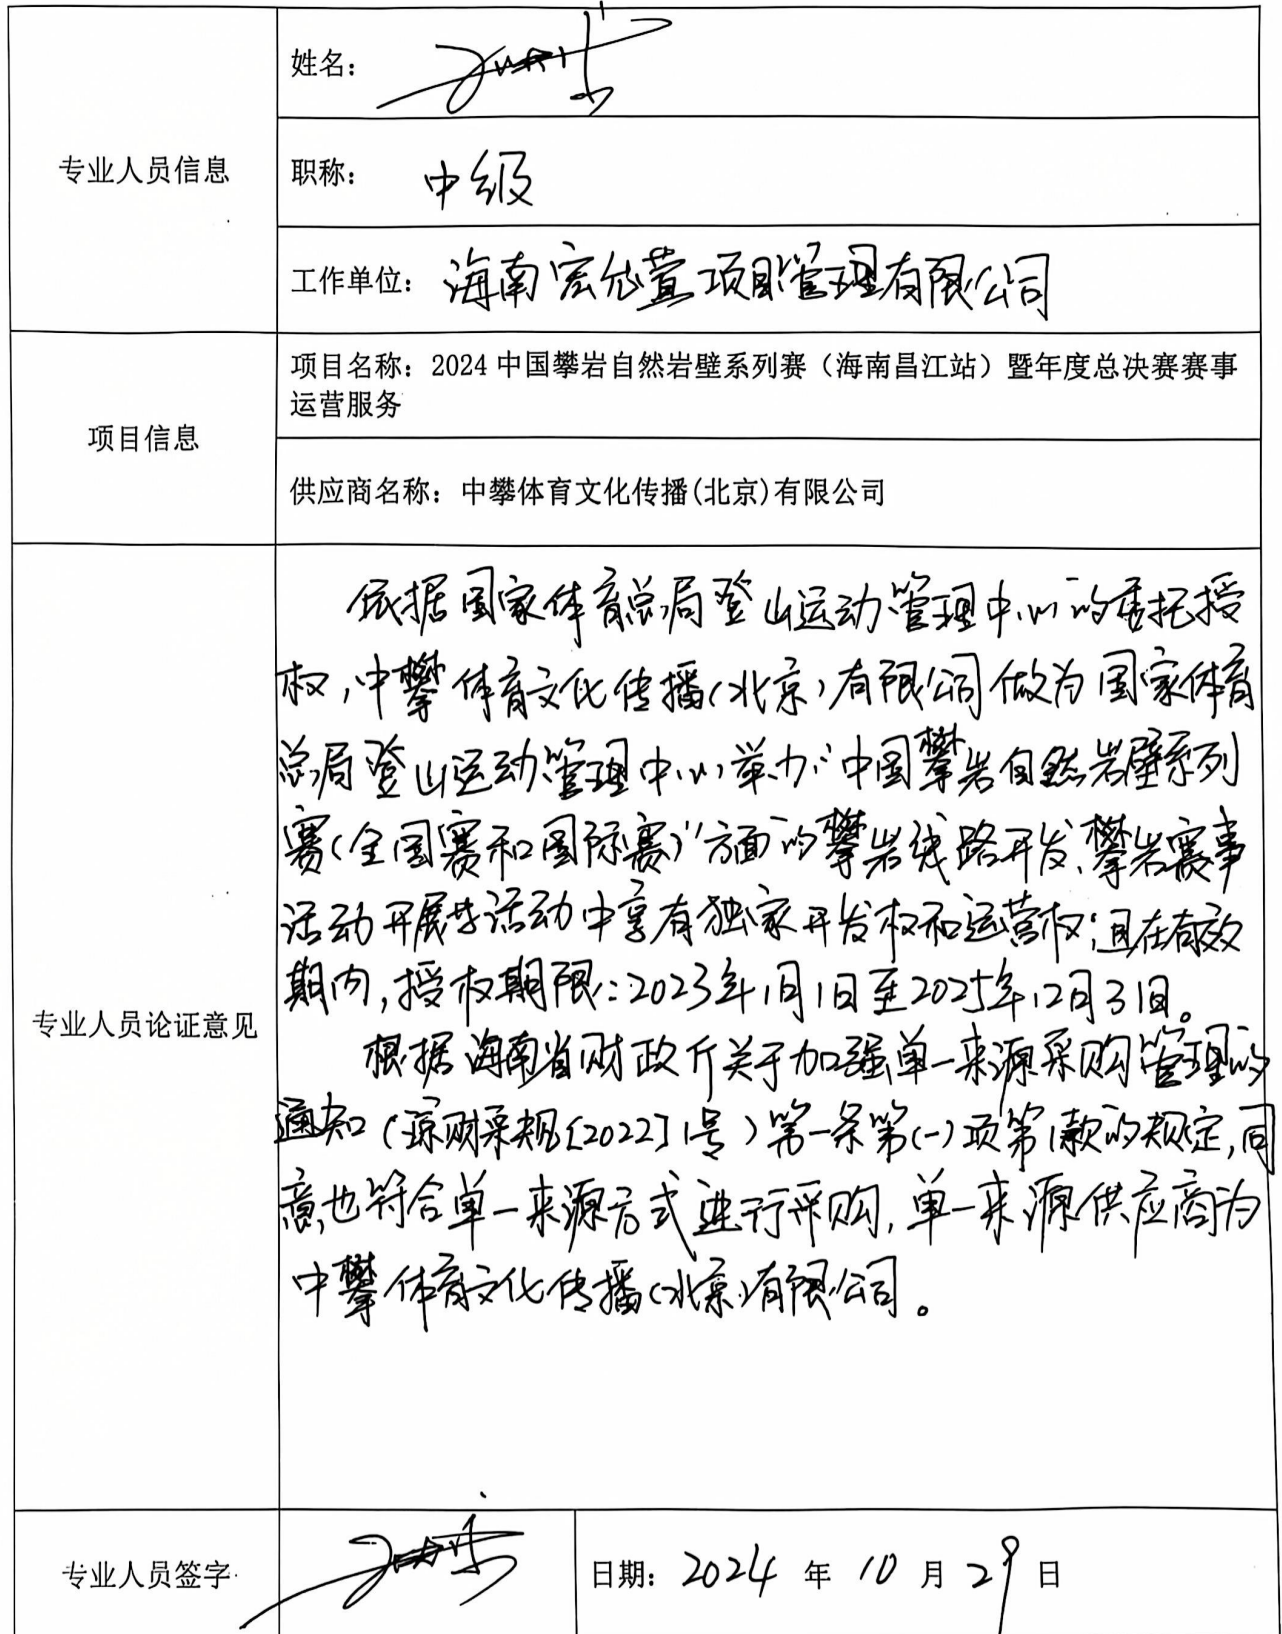 姓名：
专业人员信息
职称： 中级
工作单位： 海南宏 萱项目管理有限公司
项目信息
项目名称：2024 中国攀岩自然岩壁系列赛（海南昌江站）暨年度总决赛赛事
运营服务
供应商名称：中攀体育文化传播(北京)有限公司
专业人员论证意见
依据国家体育总局登山运动管理中心的委托授
权，中攀体育文化传播(北京)有限公司做为国家体育
总局登山运动管理中心举办“中国攀岩自然岩壁系列
赛(全国赛和国际赛)”方面的攀岩线路开发、攀岩赛事
活动开展等活动中享有独家开发权和运营权；且在有效
期内，授权期限：2023年1月1日至2025年12月31日。
根据海南省财政厅关于加强单一来源采购管理的
通知（琼财采规[2022]1号）第一条第(一)项第1款的规定，同
意也符合单一来源方式进行采购，单一来源供应商为
中攀体育文化传播(北京)有限公司。
专业人员签字
日期： 2024 年 10 月 29 日